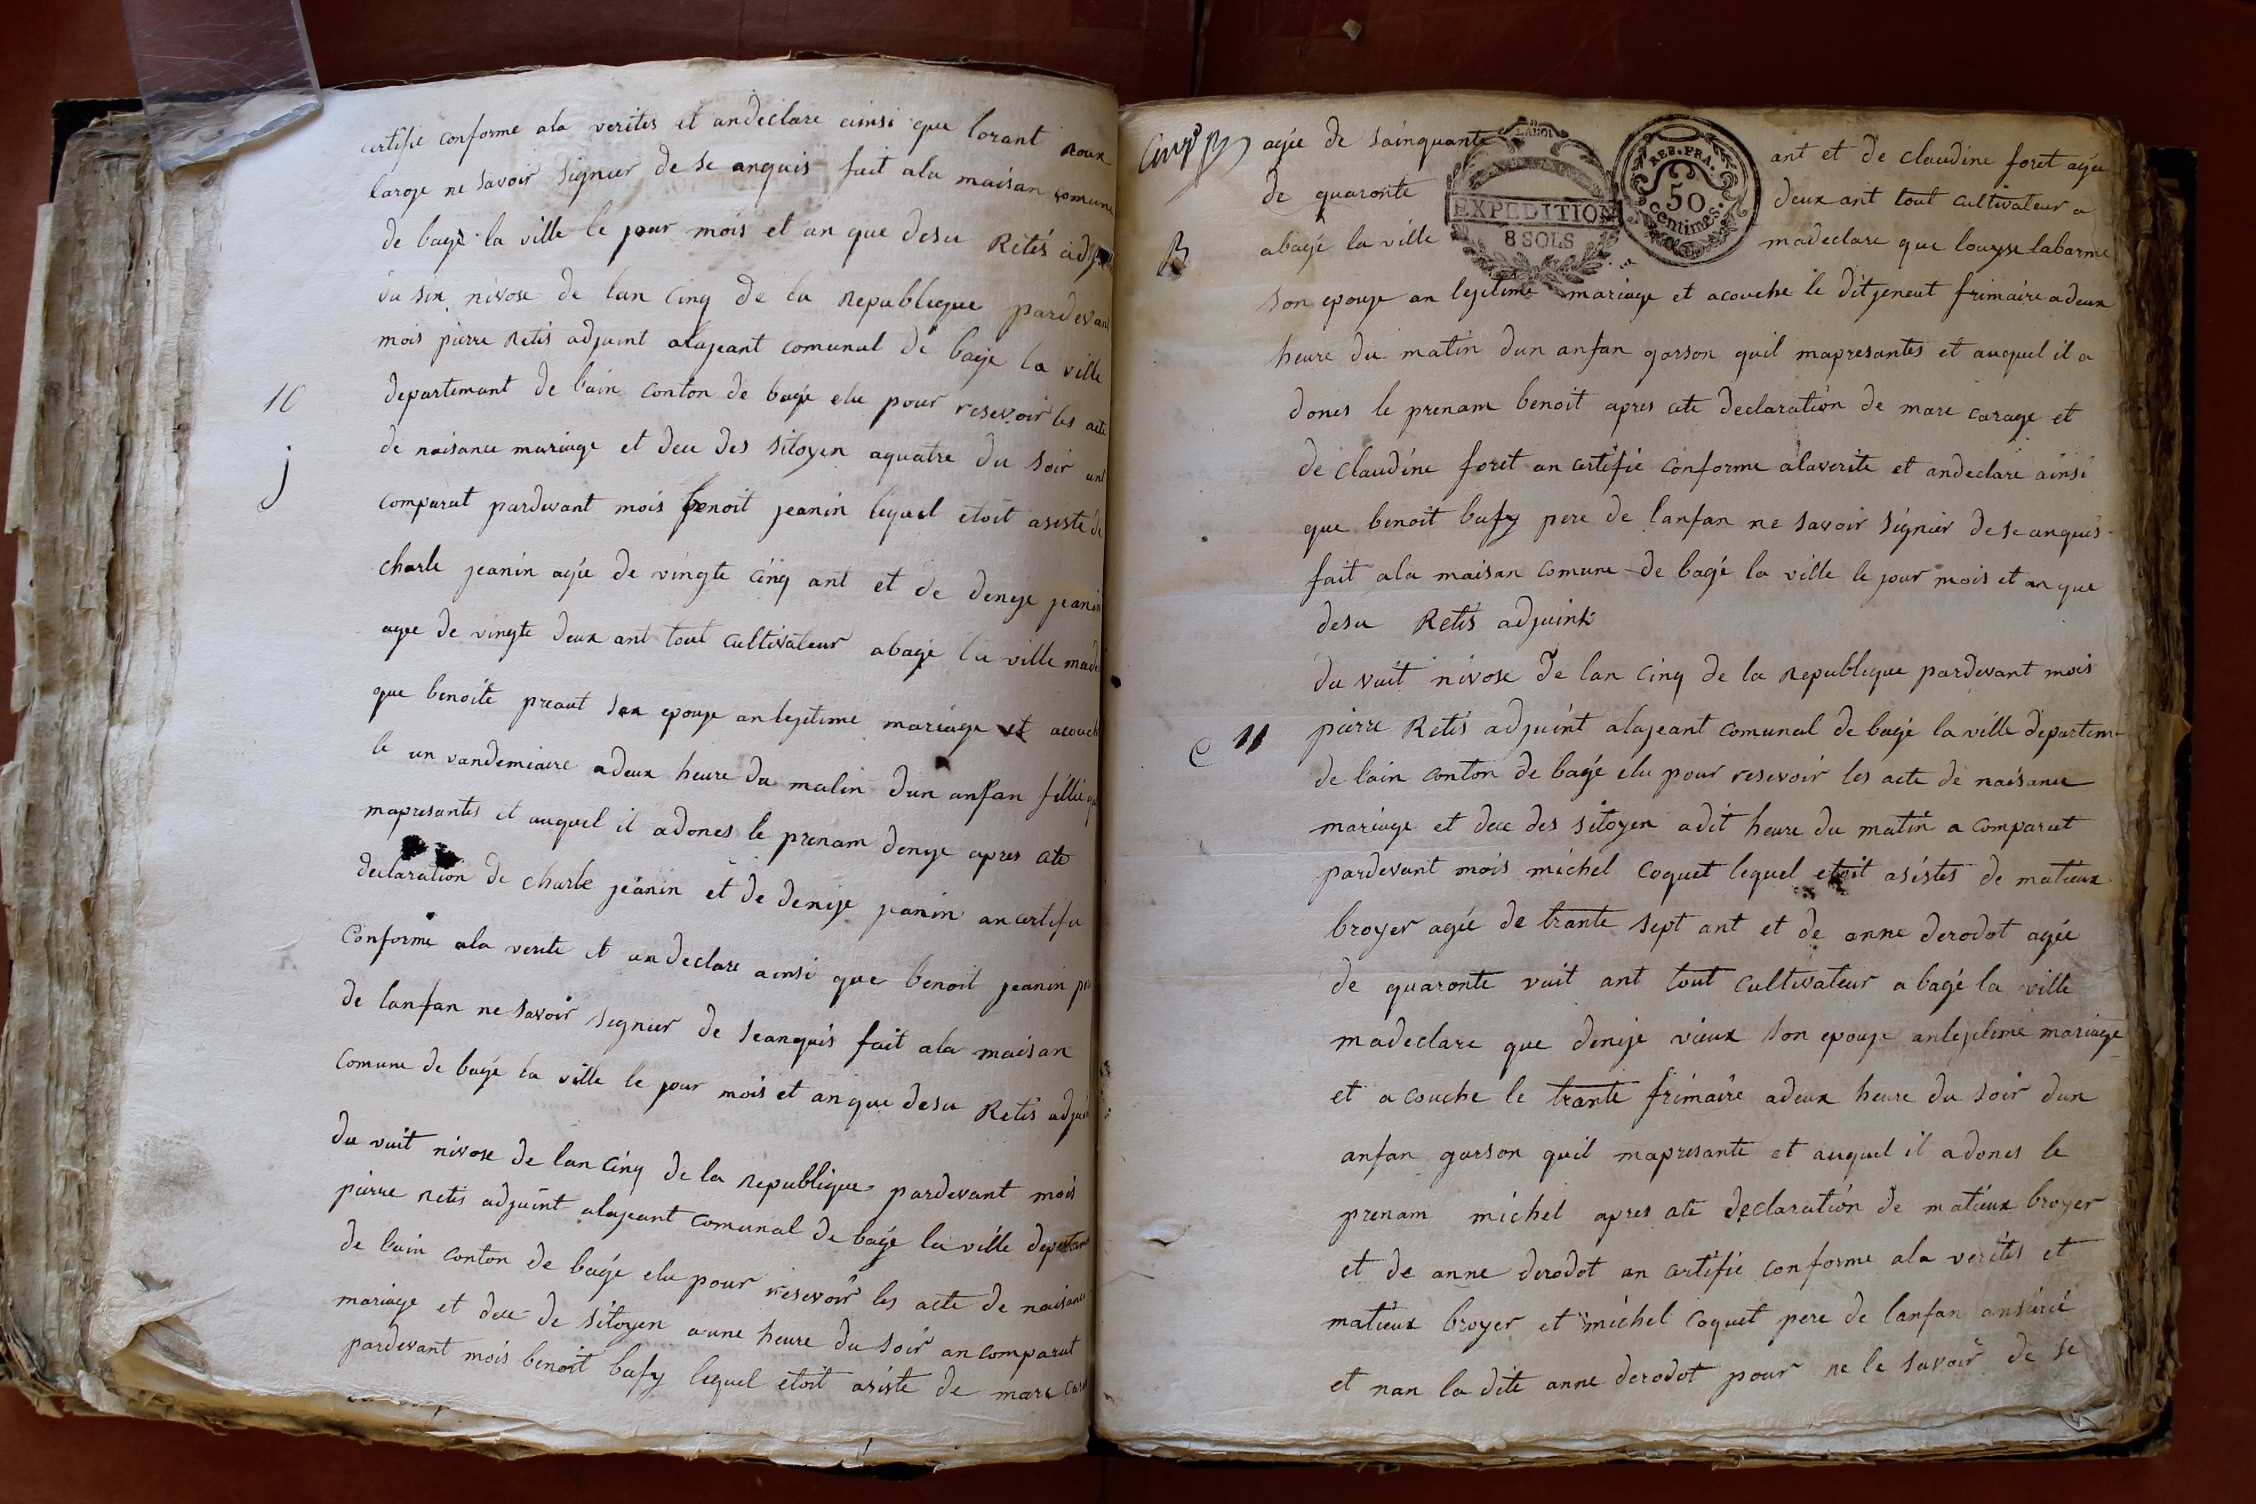 certifie conforme ala verites et andeclare ainsi que lorant Roux
laroge ne savoir signier de se anquis fait ala maisan comune
de bagé la ville le jour mois et an que desu Retis adj
du six nivose de lan cinq de la Republique pardevant
mois pierre Retis adjuint alajeant comunal de bagé la ville
10
departemant de lain conton de bagé elu pour resevoir les acte
j
de naisance mariage et dece des sitoyen aquatre du soir ant
comparut pardevant mois benoit jeanin lequel etoit asiste de
charle jeanin agée de vingte cinq ant et de denije jeanin
agee de vingte deux ant tout cultivateur abagé la ville made
que benoite preaut son epouje anlejitime mariage et acouch
le un vandemiaire adeux heure du matin dun anfan fillie
mapresantes et auquel il adones le prenam denije apres ate
declaration de charle jeanin et de denije jeanin ancertifie
conforme ala verite et andeclare ainsi que benoit jeanin
de lanfan ne savoir signier de seanquis fait ala maisan
comune de bagé la ville le jour mois et anque desu Retis adjui
du vuit nivose de lan cinq de la Republique pardevant mois
pierre Retis adjuint alajeant comunal de bagé la ville depertam
de lain conton de bagé elu pour resevoir les acte de naisance
mariage et dece de sitoyen aune heure du soir ancomparut
pardevant mois benoit bufy lequel etoit asiste de marc cara
agée de sainquante ant et de claudine foret agée
LA LOI
REP. FRA.
50
centimes.
EXPEDITION
8 SOLS
de quaronte deux ant tout cultivateur a
B
abagé la ville madeclare que louyse labarme
son epouje an lejitime mariage et acouche le ditjeneut frimaire adeux
heure du matin dun anfan garson quil mapresantes et auquel il a
dones le prenam benoit apres ate declaration de marc carage et
de claudine foret an certifie conforme alaverite et andeclare ainsi
que benoit bufy pere de lanfan ne savoir signier de se anquis
fait ala maisan comune de bagé la ville le jour mois et an que
desu Retis adjuint
du vuit nivose de lan cinq de la Republique pardevant mois
C 11 pierre Retis adjuint alajeant comunal de bagé la ville departem
de lain conton de bagé elu pour resevoir les acte de naisance
mariage et dece des sitoyen adit heure du matin a comparut
pardevant mois michel coquet lequel etoit asistes de matieux
broyer agée de trante sept ant et de anne derodot agée
de quaronte vuit ant tout cultivateur abagé la ville
madeclare que denije vieux son epouje anlejitime mariage
et a couche le trante frimaire adeux heure du soir dun
anfan garson quil mapresante et auquel il adones le
prenam michel apres ate declaration de matieux broyer
et de anne derodot an certifie conforme ala verites et
matieux broyer et michel coquet pere de lanfan
et nan la dite anne derodot pour ne le savoir de se